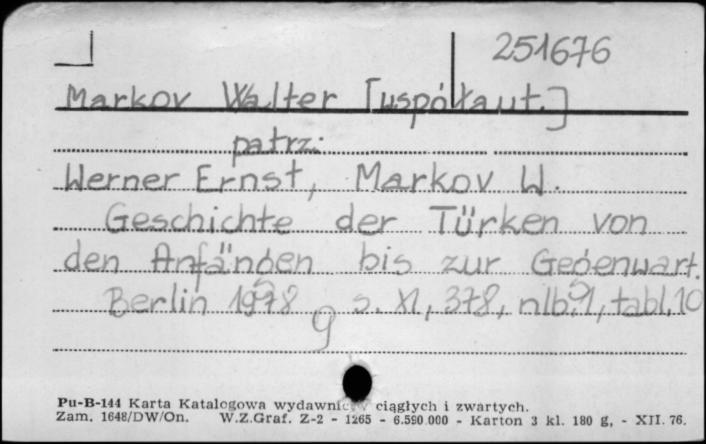 251676
Markov Walter [współaut.]
patrz:
Werner Ernst, Markov W.
Geschichte der Türken von
den Anfängen bis zur Gegenwart.
Berlin 1978 s. XI, 378, nlb. 1, tabl. 10
Pu-B-144 Karta Katalogowa wydawnictw ciągłych i zwartych.
Zam. 1648/DW/On. W.Z.Graf. Z-2 - 1265 - 6.590.000 - Karton 3 kl. 180 g, - XII. 76.